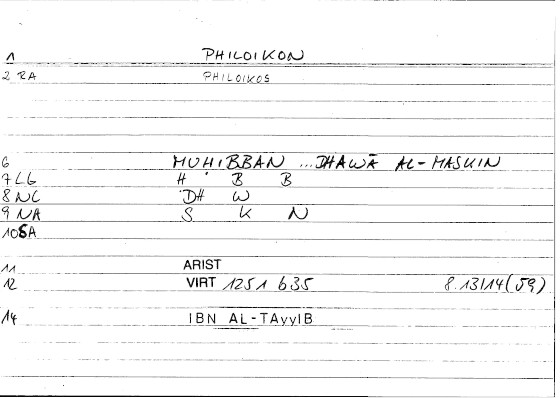 1 PHILOIKON
2 RA PHILOIKOS
6 MUHIBBAN ...DHAWĀ AL-MASKIN
7 LG H B B
8 NC DH W
9 NA S K N
10 SA
11 ARIST
12 VIRT 1251 b35 8.13/14(59)
14 IBN AL-TAyyIB